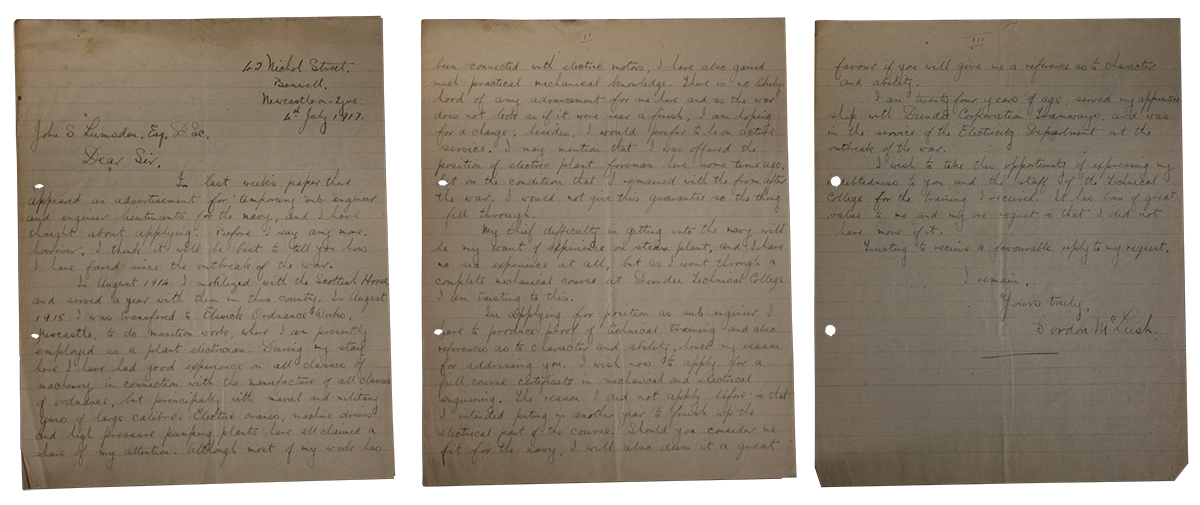 42 Nichol Street.
Benwell.
Newcastle-on-Tyne.
4th July 1917.
John S. Lumsden, Esq, D. Sc.
Dear Sir.
In last week's paper there
appeared an advertisement for temporary sub engineer
and engineer lieutenants for the navy, and I have
thought about applying. Before I say any more.
however, I think it will be best to tell you how
I have fared since the outbreak of the war.
In August 1914 I mobilized with the Scottish Horse,
and served a year with them in this country. In August
1915 I was transfered to Elswick Ordnance Works,
Newcastle, to do munition work, where I am presently
employed as a plant electrician. During my stay
here I have had good experience on all classes of
machinery in connection with the manufacture of all classes
of ordnance, but principally with naval and military
guns of large calibre. Electric cranes, machine drives
and high pressure pumping plants have all claimed a
share of my attention. Although most of my work has
II
been connected with electric motors, I have also gained
much practical mechanical knowledge. There is no likely-
hood of any advancement for me here and as the war
does not look as if it were near a finish, I am hoping
for a change; besides, I would prefer to be on active
service. I may mention that I was offered the
position of electric plant foreman here some time ago,
but on the condition that I remained with the firm after
the war. I would not give this guarantee so the thing
fell through.
My chief difficulty in getting into the navy will
be my want of experience on steam plant, and I have
no sea experience at all, but as I went through a
complete mechanical course at Dundee Technical College
I am trusting to this.
In applying for position as sub-engineer I
have to produce proof of technical training and also
references as to character and ability, hence my reason
for addressing you. I wish now to apply for a
full course certificate in mechanical and electrical
engineering. The reason I did not apply before is that
I intended puting in another year to finish up the
electrical part of the course. Should you consider me
fit for the navy, I will also deem it a great
III
favour if you will give me a reference as to character
and ability.
I am twenty four years of age, served my apprentice
ship with Dundee Corporation Tramways, and was
in the service of the Electricity Department at the
outbreak of the war.
I wish to take this opportunity of expressing my
indebtedness to you and the staff of the Technical
College for the training I received. It has been of great
value to me and my one regret is that I did not
have more of it.
Trusting to receive a favourable reply to my request.
I remain,
Yours truly,
Gordon McLush.